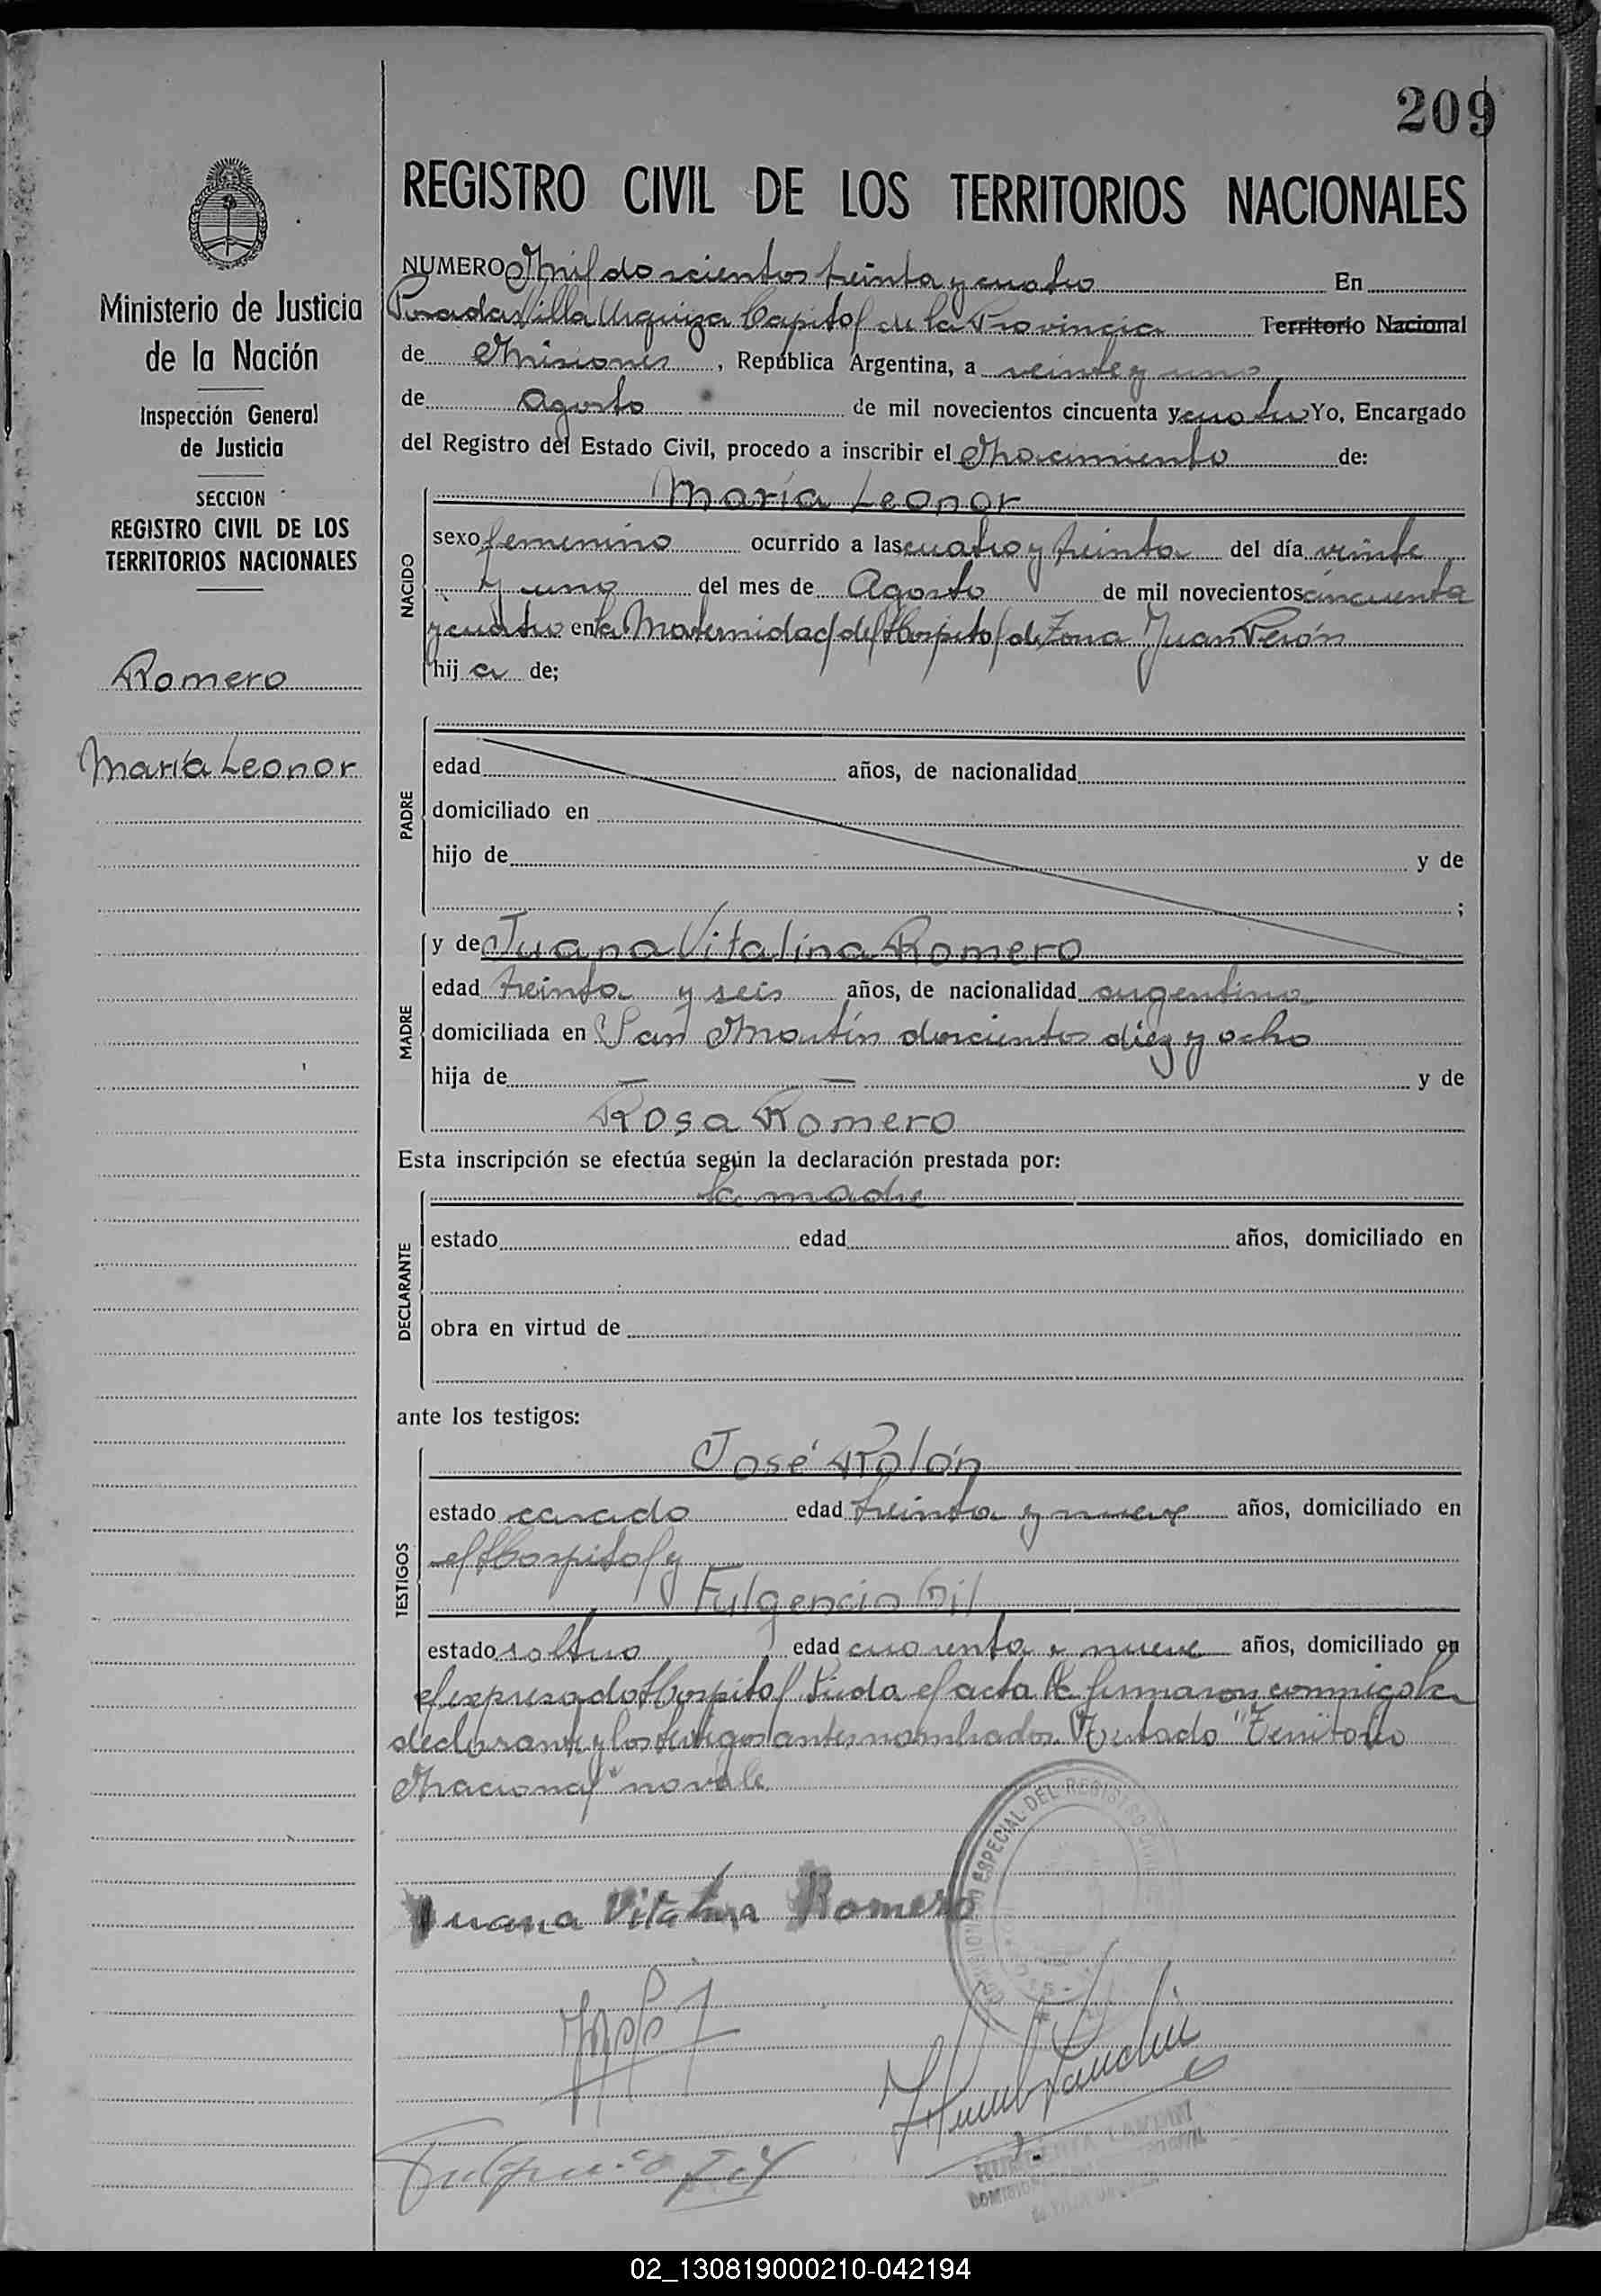 209
REGISTRO CIVIL DE LOS TERRITORIOS NACIONALES
Ministerio de Justicia
de la Nación
Inspección General
de Justicia
SECCION
REGISTRO CIVIL DE LOS
TERRITORIOS NACIONALES
Romero
María Leonor
NUMERO Mil doscientos treinta y cuatro En
Posadas Villa Urquiza Capital de la Provincia Territorio Nacional
de Misiones, República Argentina, a veinte y uno
de Agosto de mil novecientos cincuenta y cuatro Yo, Encargado
del Registro del Estado Civil, procedo a inscribir el Nacimiento de:
NACIDO
María Leonor
sexo femenino ocurrido a las cuatro y treinta del día veinte
y uno del mes de Agosto de mil novecientos cincuenta
y cuatro en la Maternidad del Hospital de Zona Juan Perón
hij a de;
PADRE
edad años, de nacionalidad
domiciliado en
hijo de y de
;
MADRE
y de Juana Vitalina Romero
edad treinta y seis años, de nacionalidad argentina
domiciliada en San Martín doscientos diez y ocho
hija de — — y de
Rosa Romero
Esta inscripción se efectúa según la declaración prestada por:
DECLARANTE
la madre
estado edad años, domiciliado en
obra en virtud de
ante los testigos:
TESTIGOS
José Rolón
estado casado edad treinta y nueve años, domiciliado en
el Hospital y
Fulgencio Gil
estado soltero edad cuarenta y nueve años, domiciliado en
el expresado Hospital Leida el acta la firmaron conmigo la
declarante y los testigos antes nombrados. Testado "Territorio
Nacional" no vale
ESPECIAL DEL REGISTRO CIVIL
Juana Vitalina Romero
02_130819000210-042194